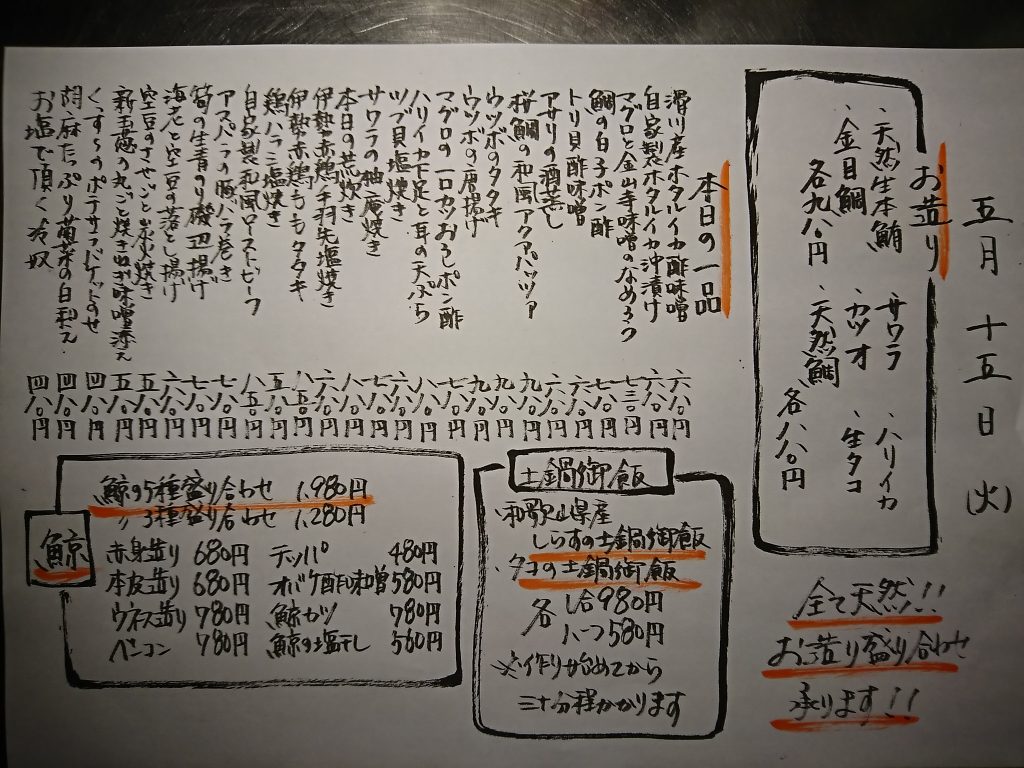 五月十五日(火)
お造り
・天然生本鮪 ・サワラ ・ハリイカ
・金目鯛 ・カツオ ・生タコ
各九八〇円 ・天然鯛 各八八〇円
全て天然!!
お造り盛り合わせ
承ります!!
本日の一品
滑川産ホタルイカ酢味噌 六八〇円
自家製ホタルイカ沖漬け 六八〇円
マグロと金山寺味噌のなめろう 七三〇円
鯛の白子ポン酢 八八〇円
トリ貝酢味噌 六八〇円
アサリの酒蒸し 六八〇円
桜鯛の和風アクアパッツァ 九八〇円
ウツボのタタキ 九八〇円
ウツボの唐揚げ 九八〇円
マグロの一口カツおろしポン酢 七八〇円
ハリイカ下足と耳の天ぷら 八八〇円
ツブ貝塩焼き 六八〇円
サワラの柚庵焼き 七八〇円
本日の荒炊き 八八〇円
伊勢赤鶏手羽先塩焼き 六八〇円
伊勢赤鶏ももタタキ 八五〇円
鶏ハツ塩焼き 五八〇円
自家製和風ローストビーフ 八五〇円
アスパラの豚バラ巻き 七八〇円
筍の生青のり磯辺揚げ 七八〇円
海老と空豆の落とし揚げ 六八〇円
空豆のさやごと炭火焼き 五八〇円
新玉葱の丸ごと焼き 味噌添え 五八〇円
くんせいのポテサラバケットのせ 四八〇円
胡麻たっぷり菊菜の白和え 四八〇円
お塩で頂く冷奴 四八〇円
土鍋御飯
・和歌山県産
しらすの土鍋御飯
・タコの土鍋御飯
各 一合980円
ハーフ580円
※作り始めてから
三十分程かかります
鯨
鯨の5種盛り合わせ 1,980円
〃3種盛り合わせ 1,280円
赤身造り 680円 テッパ 480円
本皮造り 680円 オバケ酢味噌 580円
ウネス造り 780円 鯨カツ 780円
ベーコン 780円 鯨の塩干し 560円